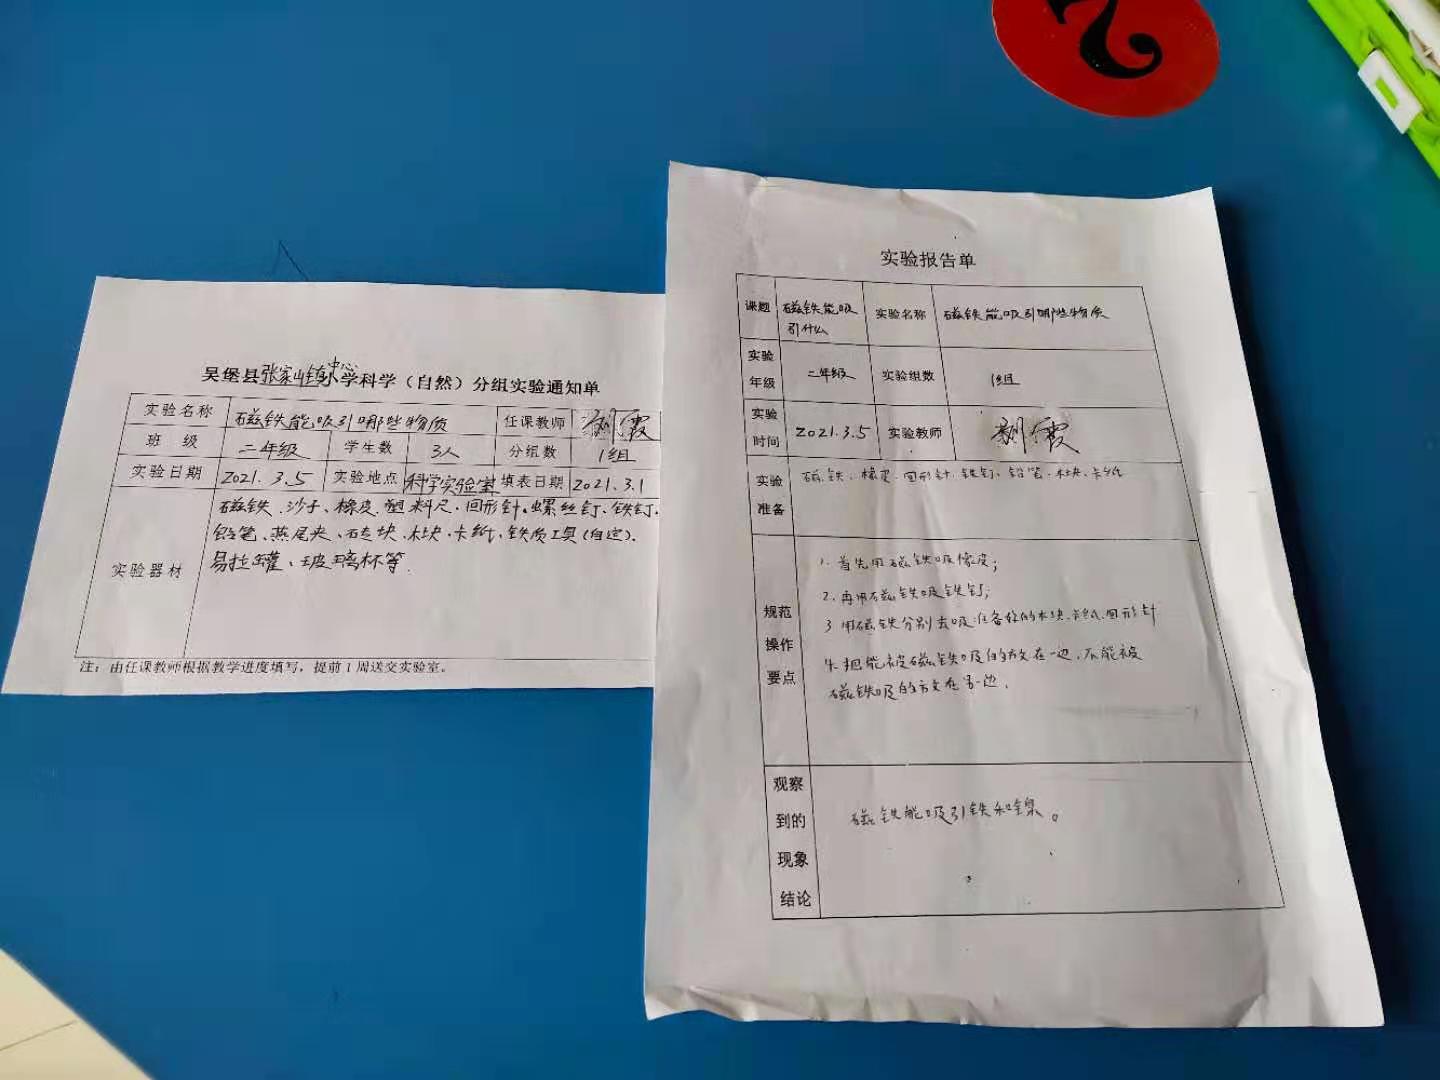 2
吴堡县张家山镇中心小学科学（自然）分组实验通知单
实验名称 磁铁能吸引哪些物质 任课教师 霞
班级 二年级 学生数 3人 分组数 1组
实验日期 2021.3.5 实验地点 科学实验室 填表日期 2021.3.1
实验器材
磁铁、沙子、橡皮、塑料尺、回形针、螺丝钉、铁钉、
铅笔、燕尾夹、砖块、木块、卡纸、铁质工具(自定)、
易拉罐、玻璃杯等.
注：由任课教师根据教学进度填写，提前1周送交实验室。
实验报告单
课题 磁铁能吸引什么 实验名称 磁铁能吸引哪些物质
实验年级 二年级 实验组数 1组
实验时间 2021.3.5 实验教师 霞
实验准备 磁铁、橡皮、回形针、铁钉、铅笔、木块、卡纸
规范操作要点
1. 首先用磁铁吸橡皮；
2. 再用磁铁吸铁钉；
3 用磁铁分别去吸准备好的木块、卡纸、回形针
4. 把能被磁铁吸的放在一边，不能被
磁铁吸的放在另一边.
观察到的现象结论
磁铁能吸引铁和镍。